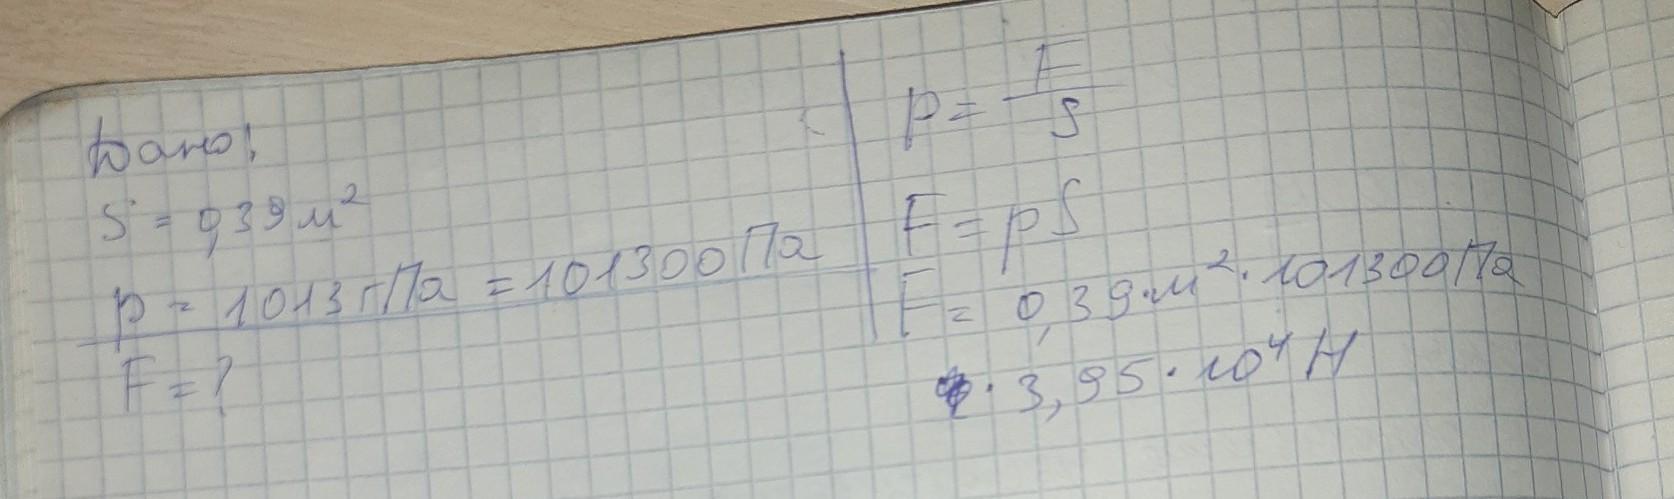 Дано:
S = 0,39 м²
p = 1013 гПа = 101300 Па
F = ?
p = F/S
F = pS
F = 0,39 · м² · 101300 Па
· 3,95 · 10⁴ Н